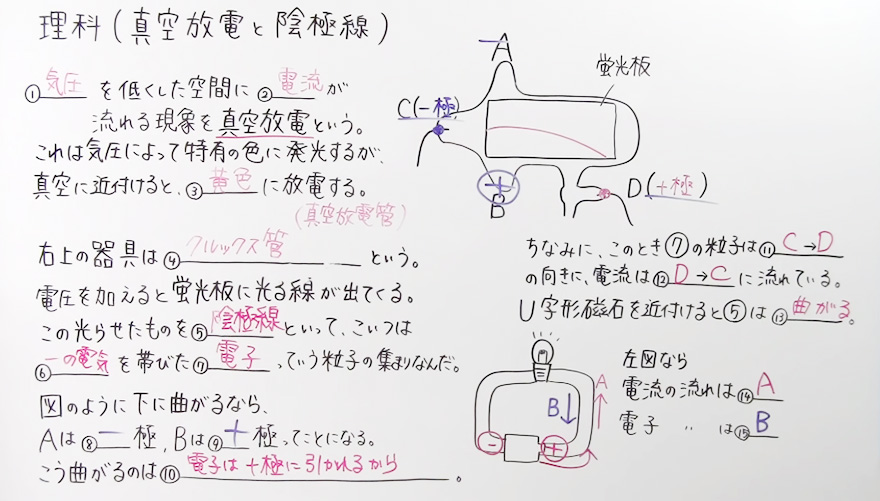 理科(真空放電と陰極線)
①気圧 を低くした空間に②電流が
流れる現象を真空放電という。
これは気圧によって特有の色に発光するが、
真空に近付けると、③黄色に放電する。
(真空放電管)
右上の器具は④クルックス管 という。
電圧を加えると蛍光板に光る線が出てくる。
この光らせたものを⑤陰極線といって、こいつは
⑥-の電気を帯びた⑦電子っていう粒子の集まりなんだ。
図のように下に曲がるなら、
Aは⑧-極、Bは⑨+極ってことになる。
こう曲がるのは⑩電子は+極に引かれるから。
- A
蛍光板
C(-極)
+
B
D(+極)
ちなみに、このとき⑦の粒子は⑪C→D
の向きに、電流は⑫D→Cに流れている。
U字形磁石を近付けると⑤は⑬曲がる。
A
B
- +
左図なら
電流の流れは⑭A
電子 〃 は⑮B